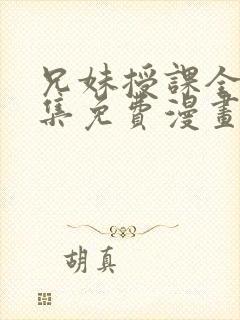 兄妹授課全
集免費漫畫
胡真